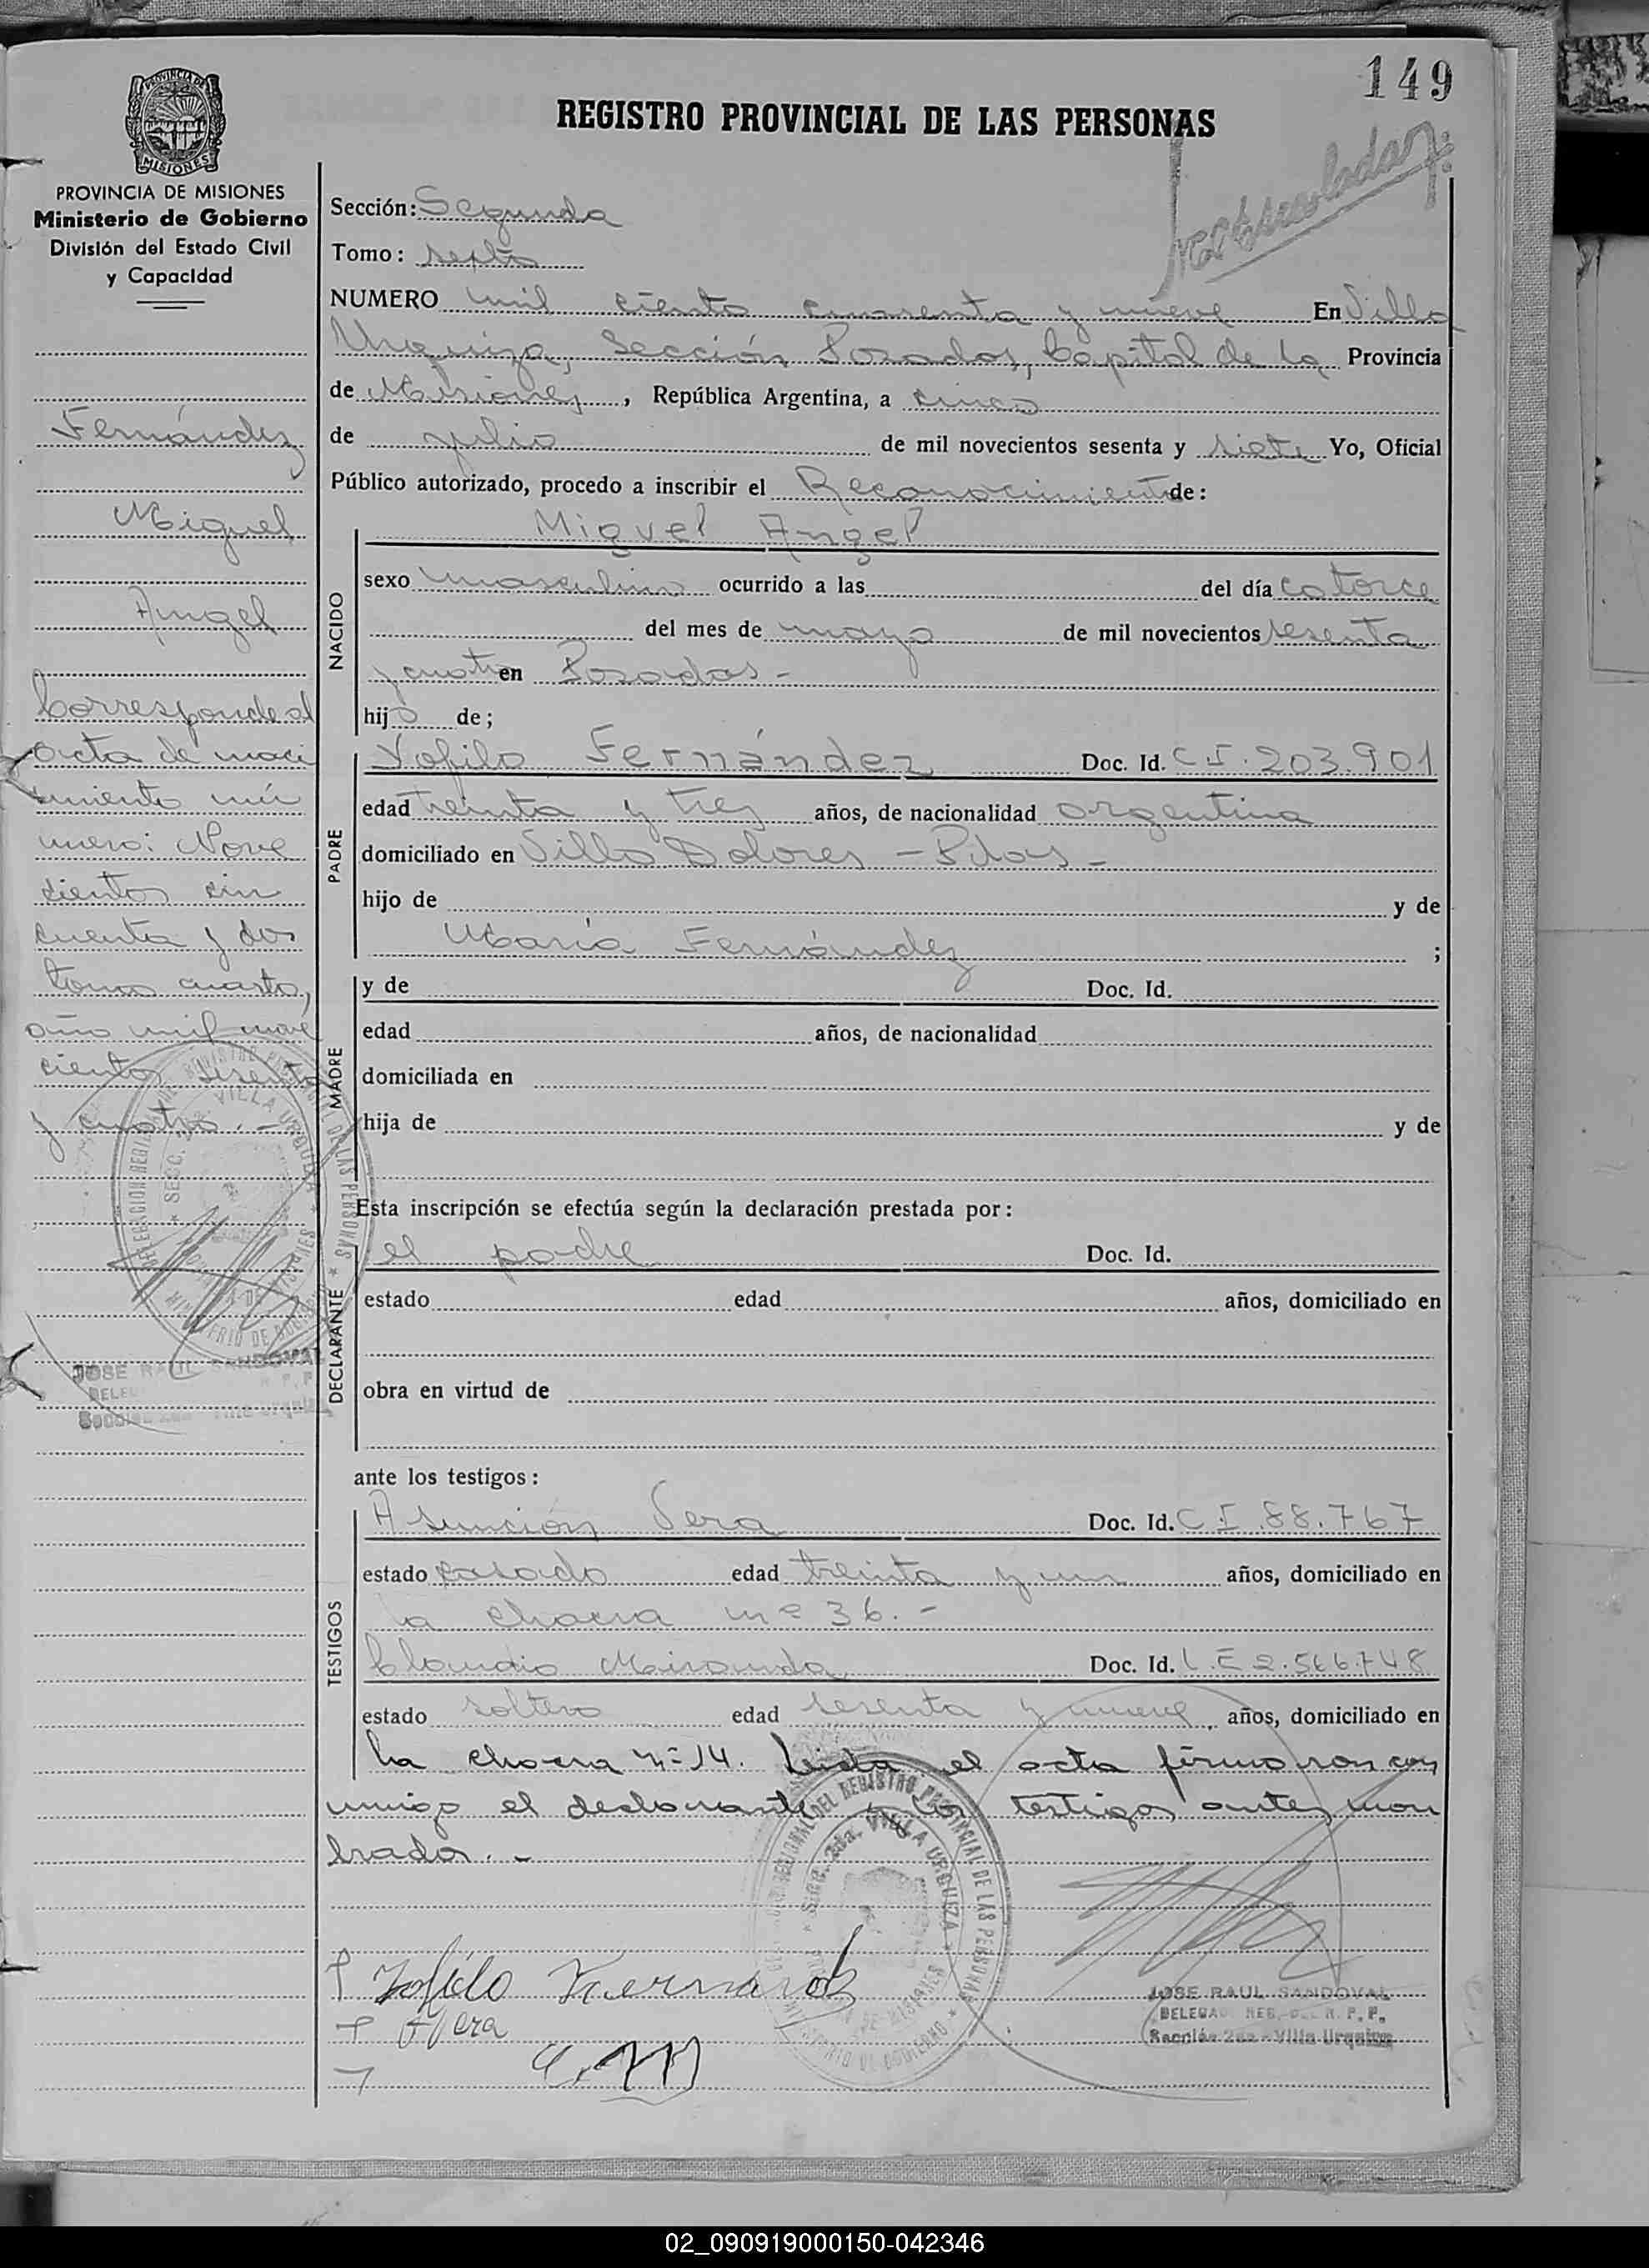 149
REGISTRO PROVINCIAL DE LAS PERSONAS
PROVINCIA DE MISIONES
Ministerio de Gobierno
División del Estado Civil
y Capacidad
Fernández
Miguel
Angel
Corresponde al
acta de naci
miento nú
mero: Nove
cientos cin
cuenta y dos
tomo cuarto,
año mil nove
cientos sesenta
y cuatro. -
JOSE RAUL SANDOVAL
Sección: Segunda
Tomo: septo
NUMERO mil ciento cuarenta y nueve En Villa
Urquiza, Sección Posadas, Capital de la Provincia
de Misiones, República Argentina, a cinco
de julio de mil novecientos sesenta y siete Yo, Oficial
Público autorizado, procedo a inscribir el Reconocimiento de:
Miguel Angel
NACIDO
sexo masculino ocurrido a las del día catorce
del mes de mayo de mil novecientos sesenta
y cuatro en Posadas -
hijo de;
PADRE
Yofilo Fernández Doc. Id. C.I. 203.901
edad treinta y tres años, de nacionalidad argentina
domiciliado en Villa Dolores - Pdas -
hijo de y de
María Fernández ;
MADRE
y de Doc. Id.
edad años, de nacionalidad
domiciliada en
hija de y de
Esta inscripción se efectúa según la declaración prestada por:
DECLARANTE
el padre Doc. Id.
estado edad años, domiciliado en
obra en virtud de
ante los testigos:
TESTIGOS
Asunción Vera Doc. Id. C I .88.767
estado casado edad treinta y un años, domiciliado en
la chacra nº 36. -
Claudio Miranda Doc. Id. L.E 2.566.748
estado soltero edad sesenta y nueve, años, domiciliado en
la chacra nº 14. Leida el acta firmaron con
migo el declarante y los testigos antes nom
brados. -
Yofilo Fernandez
A Vera
C. M
JOSE RAUL SANDOVAL
DELEGADO REG. DEL R. P. P.
Sección 2da - Villa Urquiza
DELEGACION REGIONAL DEL REGISTRO PROVINCIAL DE LAS PERSONAS
Secc. 2da. VILLA URQUIZA
MINISTERIO DE GOBIERNO
02_090919000150-042346